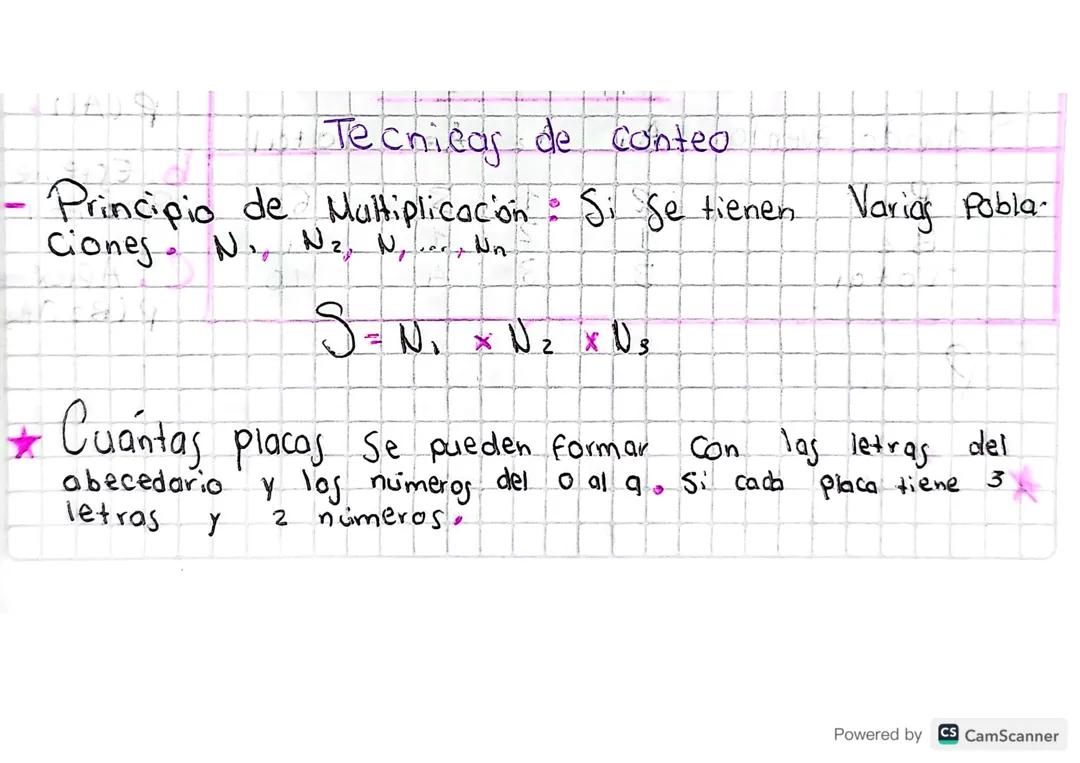 Tecnicas de conteo
- Principio de Multiplicación: Si se tienen Varias Pobla-
ciones. N₁, N₂, N, ..., Nn
S = N₁ x N₂ x N₃
★ Cuántas placas se pueden formar con las letras del
abecedario y los números del 0 al 9. Si cada placa tiene 3
letras y 2 números.
Powered by CS CamScanner